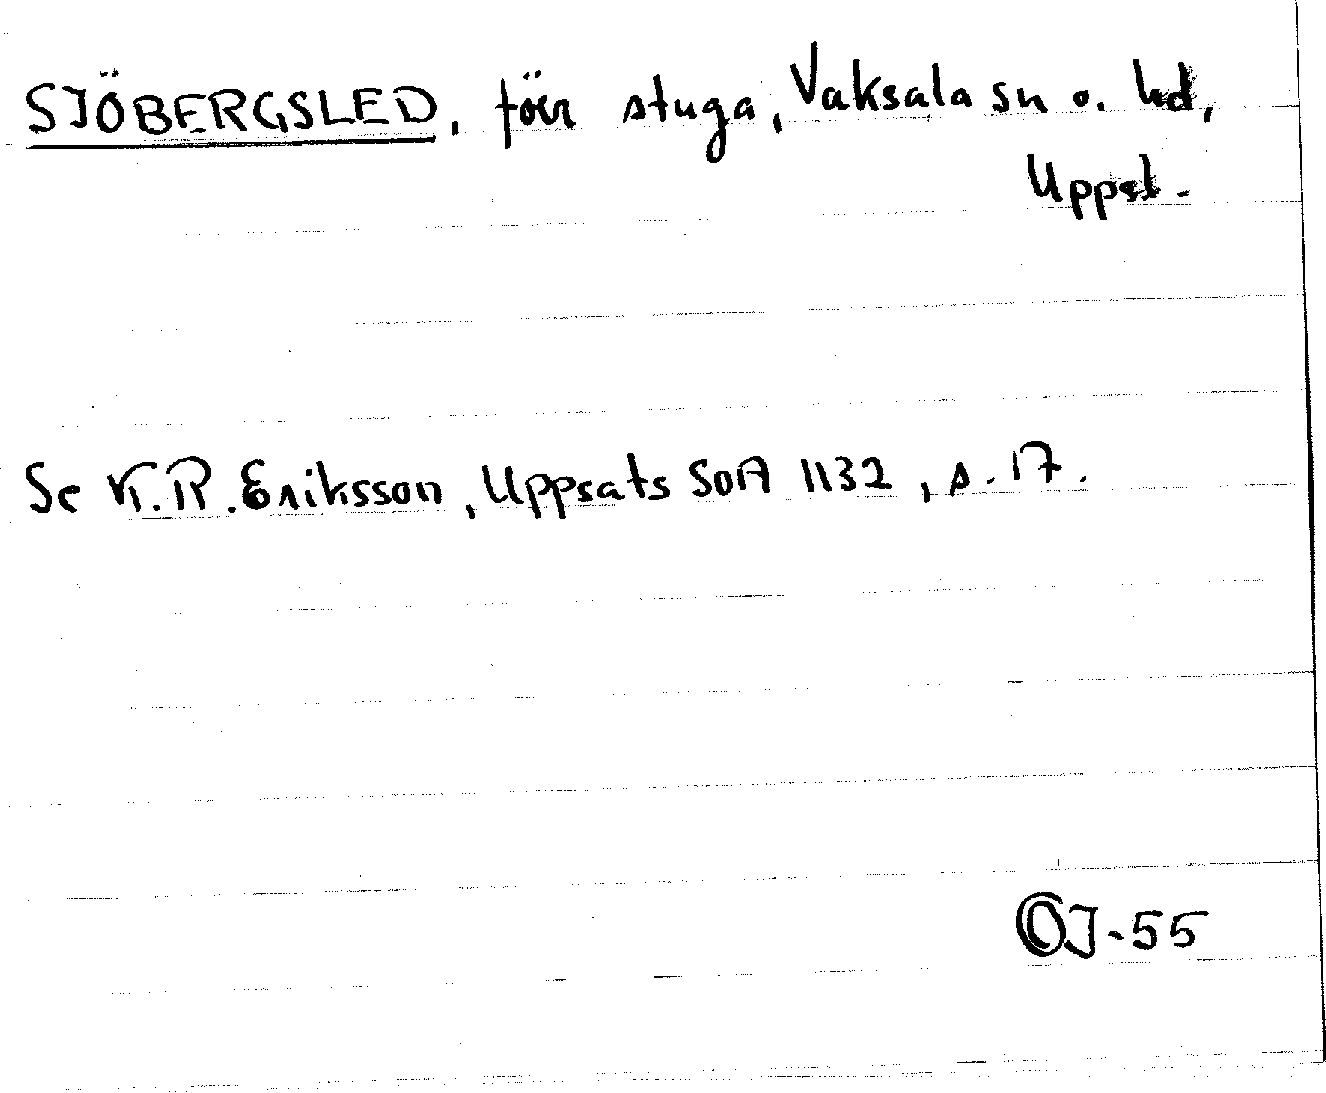 SJÖBERGSLED, förr stuga, Vaksala sn o. hd,
Uppsl.
Se K.R. Eriksson, Uppsats SOA 1132, s. 17.
OJ-55